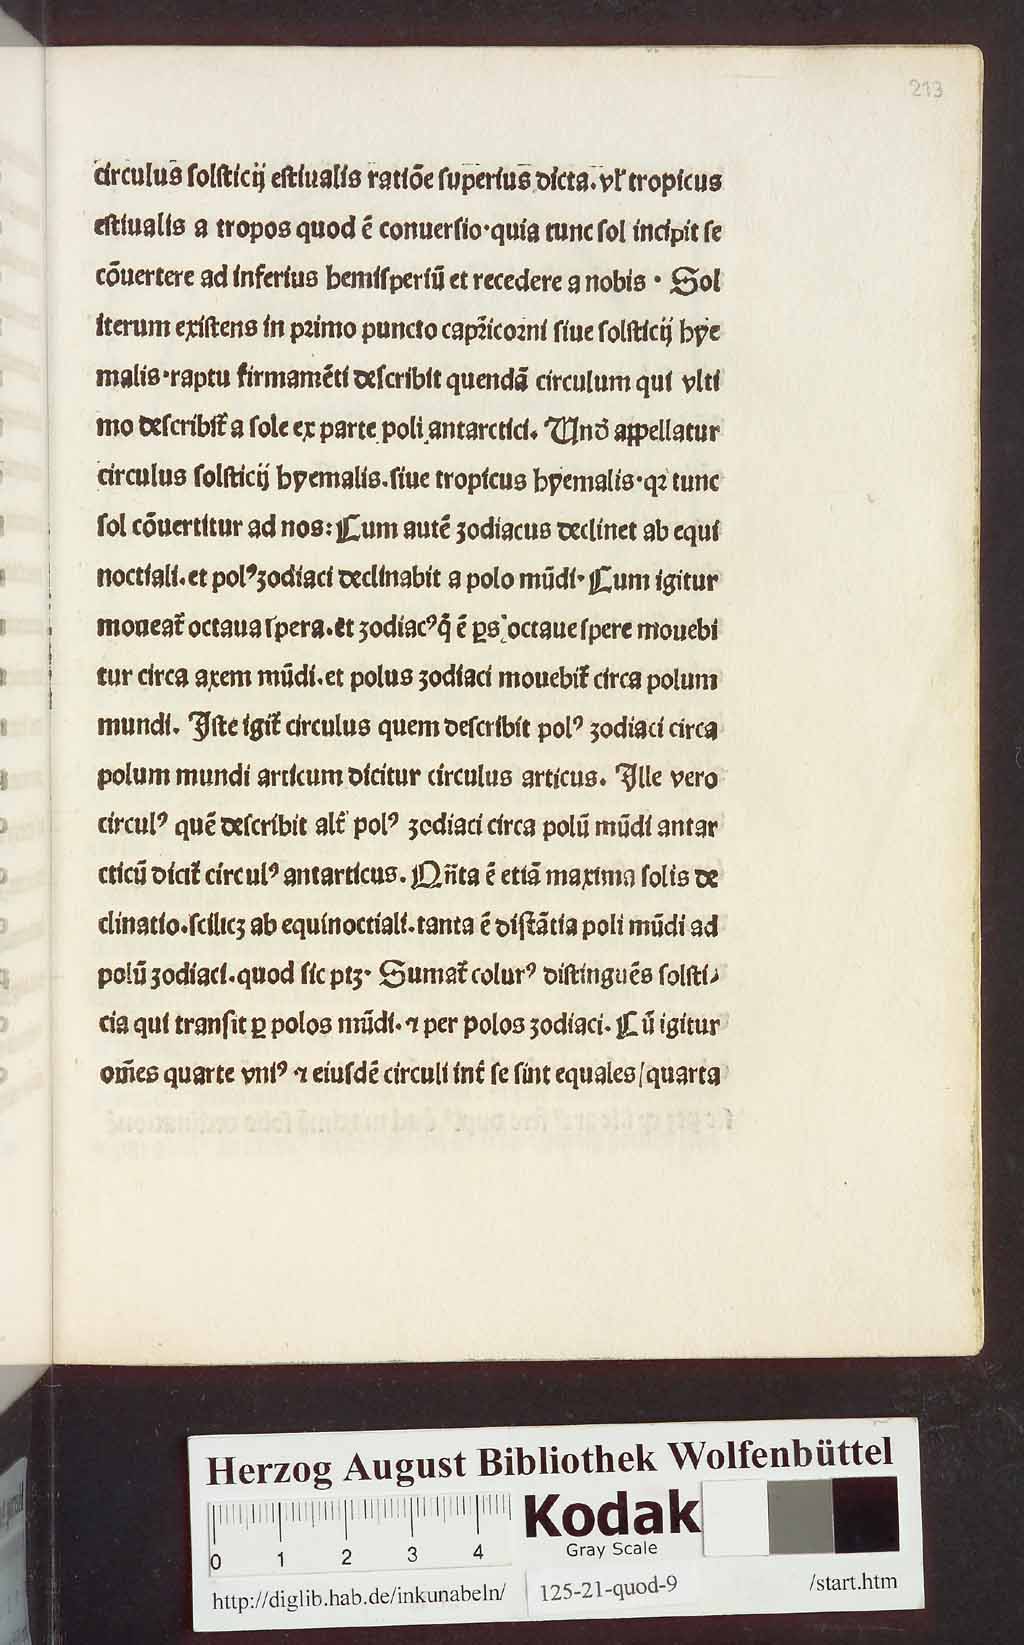 213
circulus ſolſticij eſtiualis ratiōe ſuperius dicta. vl᷑ tropicus
eſtiualis a tropos quod ē conuerſio·quia tunc ſol incipit ſe
cōuertere ad inferius hemiſperiū et recedere a nobis · Sol
iterum exiſtens in pꝛimo puncto capꝛicoꝛni ſiue ſolſticij hye
malis·raptu firmamēti deſcribit quendā circulum qui vlti
mo deſcribit᷑ a ſole ex parte poli antarctici. Unō appellatur
circulus ſolſticij hyemalis.ſiue tropicus hyemalis·qꝛ tunc
ſol cōuertitur ad nos: Cum autē zodiacus declinet ab equi
noctiali.et polꝰ zodiaci declinabit a polo mūdi· Cum igitur
moueat᷑ octaua ſpera.et zodiacꝰ q̄ ē ꝑs octaue ſpere mouebi
tur circa axem mūdi.et polus zodiaci mouebit᷑ circa polum
mundi. Iſte igit᷑ circulus quem deſcribit polꝰ zodiaci circa
polum mundi articum dicitur circulus articus. Ille vero
circulꝰ quē deſcribit alt᷑ polꝰ zodiaci circa polū mūdi antar
cticū dicit᷑ circulꝰ antarticus. Qn̄ta ē etiā maxima ſolis de
clinatio.ſcilicꝫ ab equinoctiali.tanta ē diſtātia poli mūdi ad
polū zodiaci.quod ſic ptꝫ· Sumat᷑ colurꝰ diſtinguēs ſolſti⸗
cia qui tranſit ꝑ polos mūdi.⁊ per polos zodiaci. Cū igitur
om̄es quarte vniꝰ ⁊ eiuſdē circuli int᷑ ſe ſint equales/quarta
Herzog August Bibliothek Wolfenbüttel
0 1 2 3 4
Kodak
Gray Scale
http://diglib.hab.de/inkunabeln/ 125-21-quod-9 /start.htm